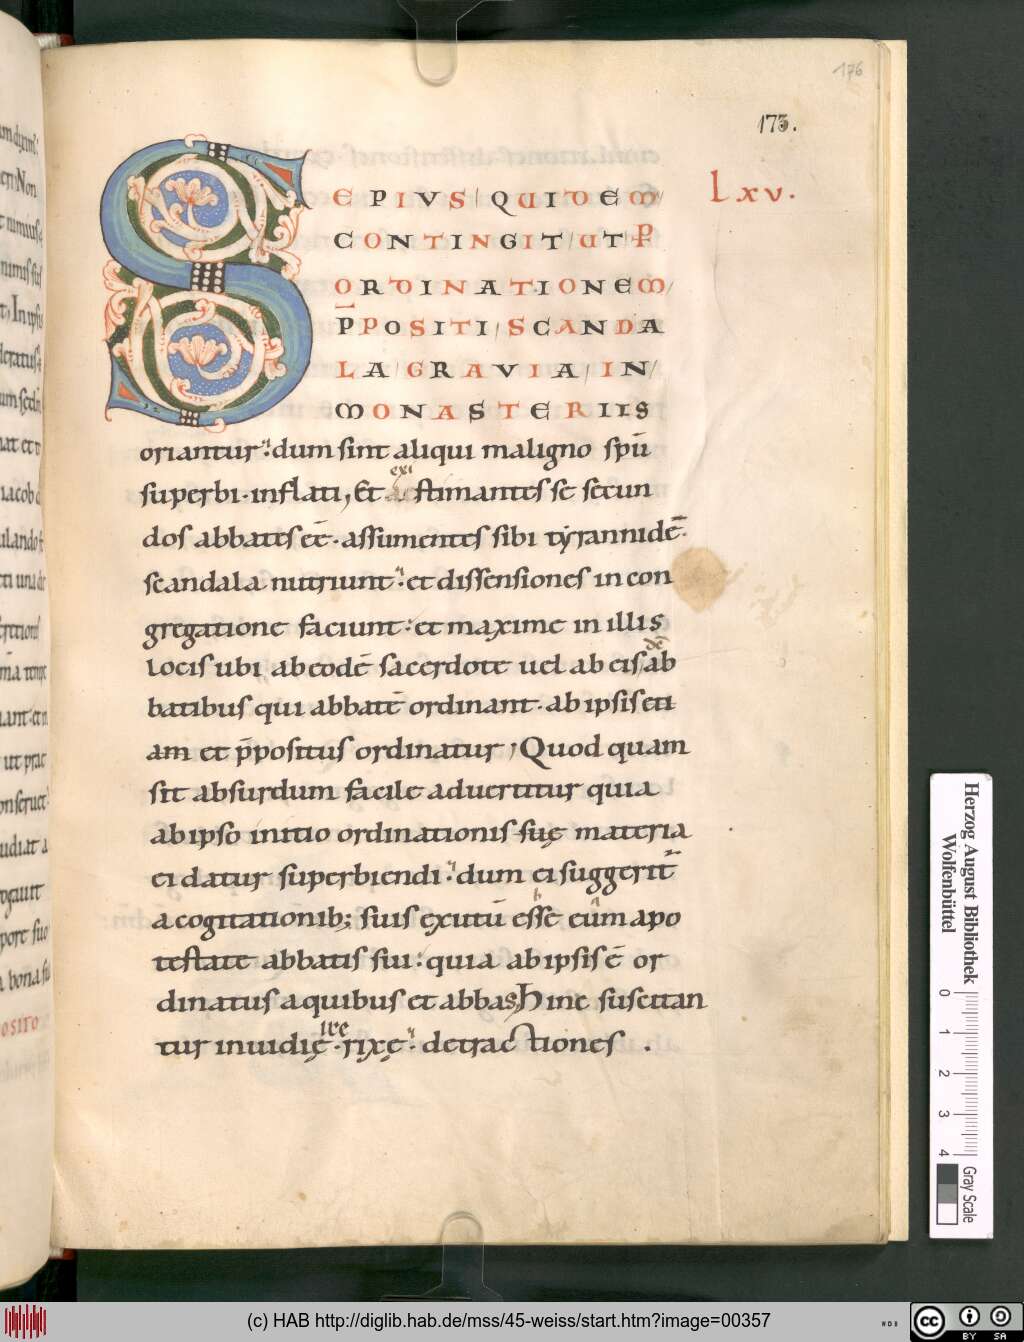 176
173.
Lxv.
SEPIVS QUIDEM
CONTINGIT UT P
ORDINATIONEM
P̄POSITI SCANDA
LA GRAVIA IN
MONASTERIIS
oriantur. dum sint aliqui maligno spū
superbi. inflati, Et exi stimantes se secun
dos abbates eē. assumentes sibi tyrannidē.
scandala nutriunt. et dissensiones in con
gregatione faciunt. et maxime in illis
locis ubi ab eodē sacerdote uel ab eis ab
batibus qui abbatē ordinant. ab ipsis eti
am et p̄positus ordinatur; Quod quam
sit absurdum facile aduertitur quia
ab ipso initio ordinationis suę materia
ei datur superbiendi. dum ei suggerit̄
a cogitationib; suis exutū esse eum a po
testate abbatis sui. quia ab ipsis ē or
dinatus a quibus et abbas, Hinc suscitan
tur inuidię. rixę. detractiones.
ire
OSITO
Herzog August Bibliothek
Wolfenbüttel
0 1 2 3 4
Gray Scale
(c) HAB http://diglib.hab.de/mss/45-weiss/start.htm?image=00357
WDB
cc BY SA